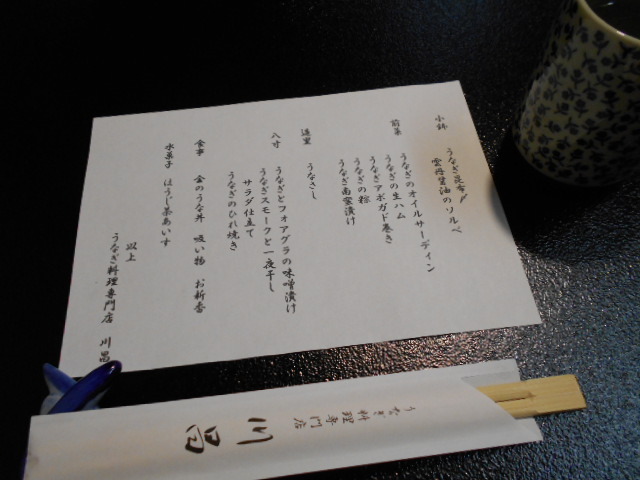 小鉢
うなぎ昆布〆
雲丹醤油のソルベ
前菜
うなぎのオイルサーディン
うなぎの生ハム
うなぎアボガド巻き
うなぎの粽
うなぎ南蛮漬け
造里
うなさし
八寸
うなぎとフォアグラの味噌漬け
うなぎスモークと一夜干し
サラダ仕立て
うなぎのひれ焼き
食事 金のうな丼 吸い物 お新香
水菓子 ほうじ茶あいす
以上
うなぎ料理専門店 川昌
うなぎ料理専門店
川昌